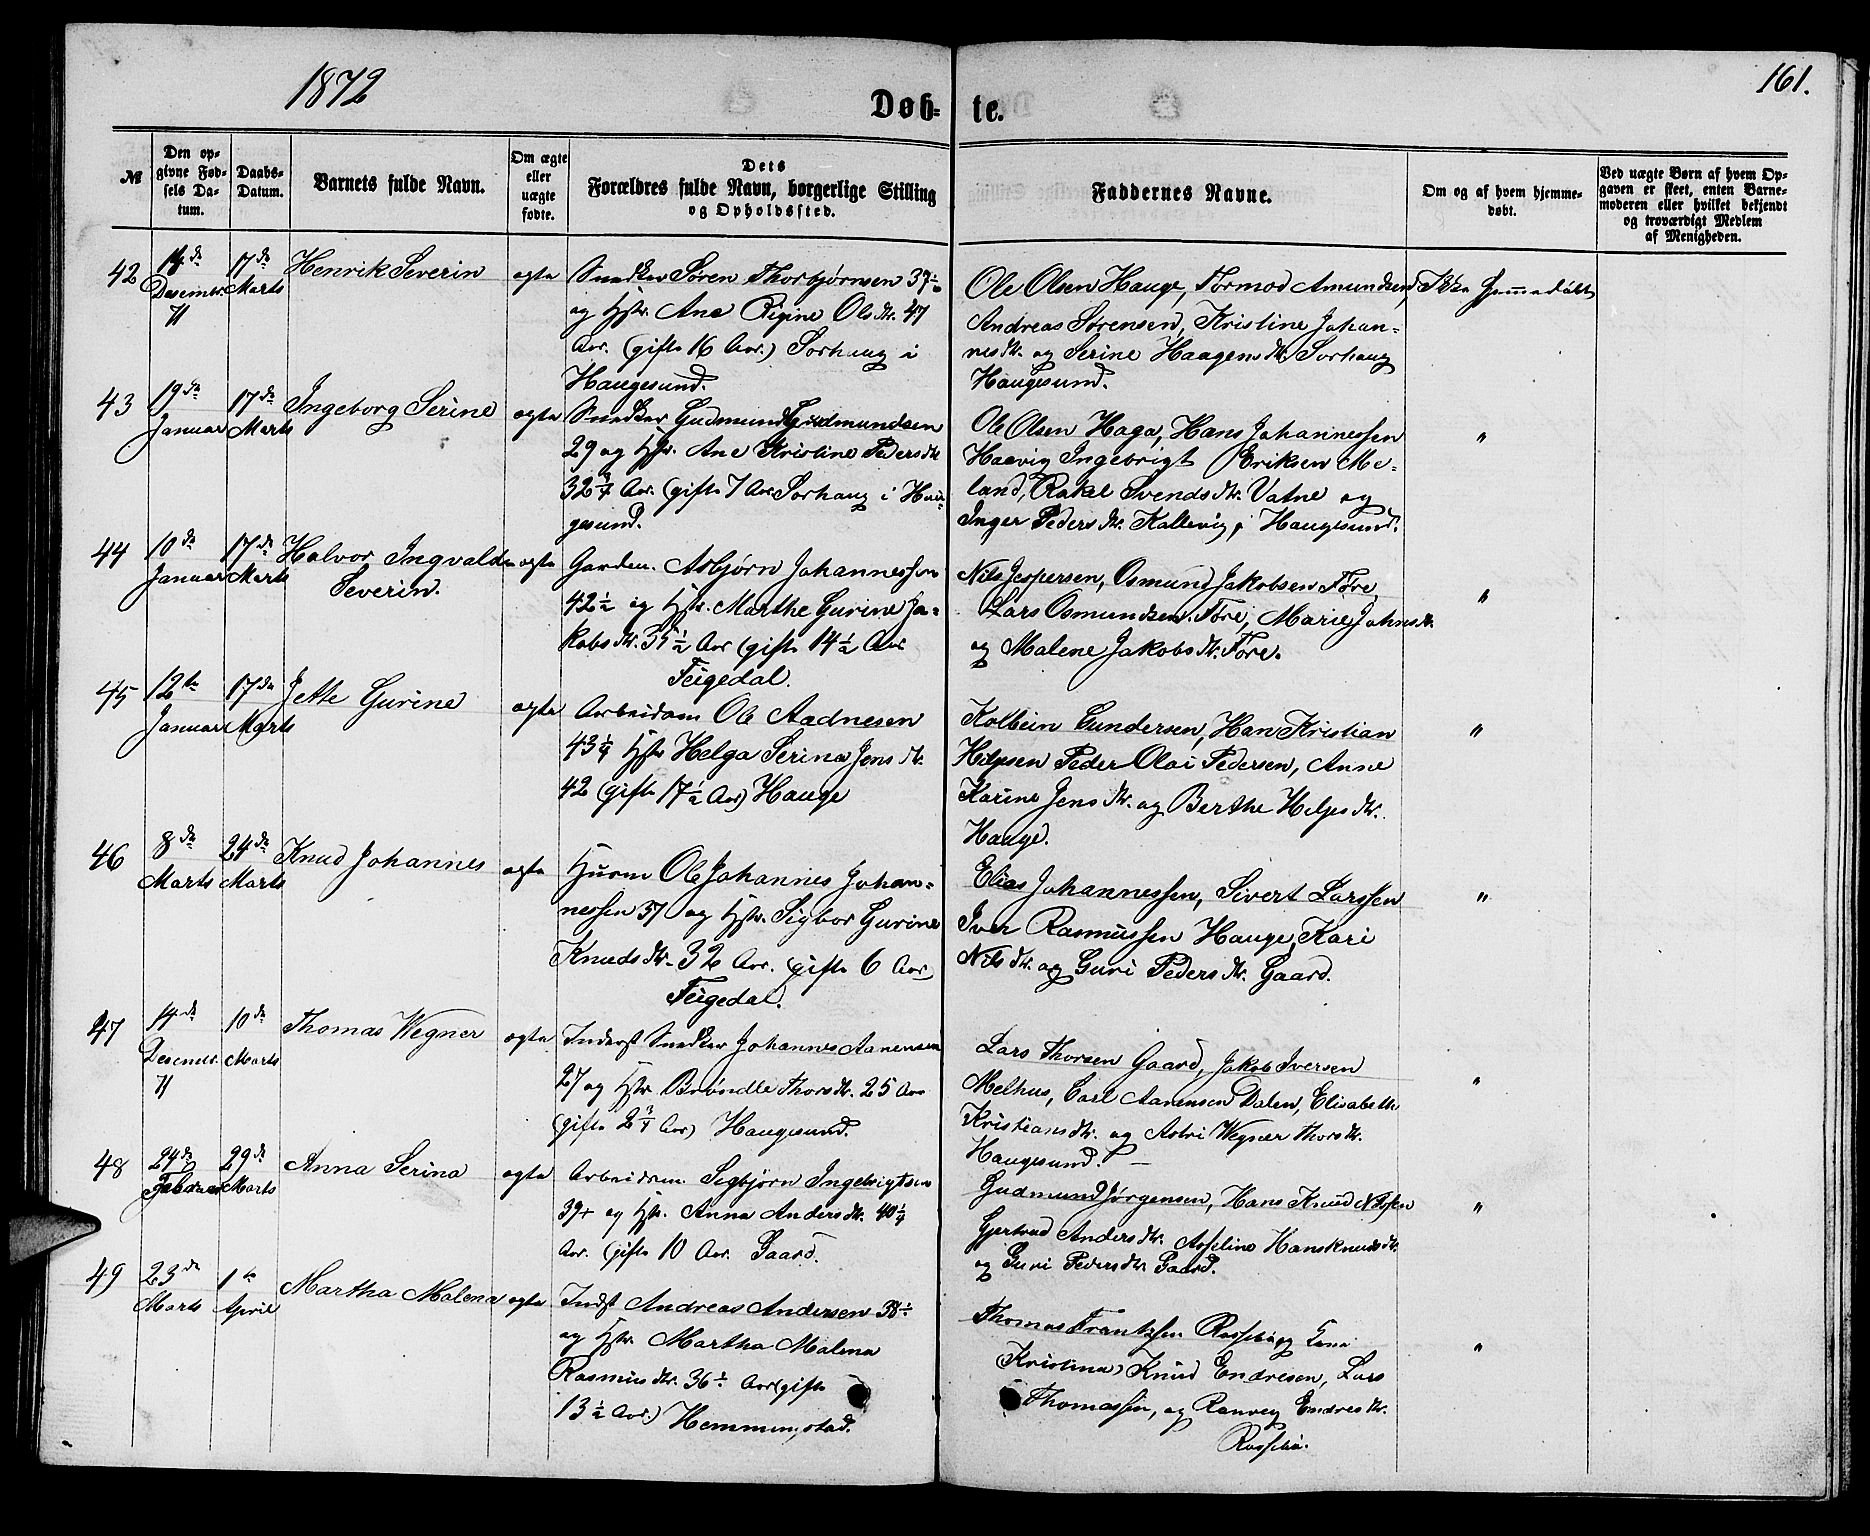 1872
161.
Døb-
te.
№
Den op-
givne Fød-
sels Da-
tum.
Daabs-
Datum.
Barnets fulde Navn.
Om ægte
eller
uægte
fødte.
Dets
Forældres fulde Navn, borgerlige Stilling
og Opholdssted.
Faddernes Navne.
Om og af hvem hjemme-
døbt.
Ved uægte Børn af hvem Op-
gaven er skeet, enten Barne-
moderen eller hvilket bekjendt
og troværdigt Medlem
af Menigheden.
42
14de
Desembr.
71
17de
Marts
Henrik Severin
egte
Snedker Søren Thorbjørnsen 39½
og Hstr. Ane Regine Olsdtr. 47
Aar. (gifte 16 Aar.) Sørhaug i
Haugesund.
Ole Olsen Hauge, Tormod Amundsen,
Andreas Sørensen, Kristine Johan-
nesdtr. og Serine Haagensdtr. Sørhaug
Haugesund.
Ikke Hjemmedøbt
43
19de
Januar
17de
Marts
Ingeborg Serine
egte
Snedker Gudmund Gudmundsen
29 og Hstr. Ane Kristine Pedersdtr
32¾ Aar. (gifte 7 Aar Sørhaug i Hau-
gesund.
Ole Olsen Haga, Hans Johannessen
Haavig Ingebrigt Eriksen Me-
land, Rakel Svendsdtr. Vatne og
Inger Pedersdtr. Kallevig, i Haugesund.
"
44
10de
Januar
17de
Marts
Halvor Ingvald
Severin.
egte
Gardm. Asbjørn Johannessen
42½ og Hstr. Marthe Gurine Ja-
kobsdtr. 35½ Aar (gifte 14½ Aar
Feigedal.
Nils Jespersen, Osmund Jakobsen Føre,
Lars Osmundsen Føre, Marie Johnsdtr.
og Malene Jakobsdtr. Føre.
"
45
12te
Januar
17de
Marts
Jette Gurine
egte
Arbeidsm Ole Aadnesen
43¼ Hstr Helga Serina Jensdtr.
42 (gifte 17½ Aar) Hauge
Kolbein Gundersen, Han Kristian
Helgesen Peder Olai Pedersen, Anne
Karine Jensdtr. og Berthe Helgesdtr.
Hauge.
"
46
8de
Marts
24de
Marts
Knud Johannes
egte
Husm Ole Johannes Johan-
nessen 37 og Hstr. Sigbor Gurine
Knudsdtr. 32 Aar. (gifte 6 Aar)
Feigedal.
Elias Johannessen, Sivert Larssen
Iver Rasmussen Hauge, Kari
Nilsdtr. og Guri Pedersdtr. Gaard.
"
47
14de
Desembr.
71
10de
Marts
Thomas Wegner
egte
Inderst Snedker Johannes Aanensen
27 og Hstr Thorsdtr. 25 Aar
(gifte 2¾ Aar) Haugesund.
Lars Thorsen Gaard, Jakob Iversen
Melhus, Carl Aanensen Dalen, Elisabeth
Kristiansdtr. og Astri Wegner Thorsdtr.
Haugesund. —
"
48
24de
Februar
29de
Marts
Anna Serina
egte
Arbeidsm. Segbjørn Ingebrigtsen
og Hstr. Anna Andersdtr. 40¼
Aar. (gifte 10 Aar. Gaard.
Gudmund Jørgensen, Hans Knud Nilssen
Gjertrud Andersdtr. Asseline Hansknudsdtr.
og Guri Pedersdtr. Gaard.
"
49
23de
Marts
1te
April
Martha Malena
egte
Indst Andreas Andersen 38½
og Hstr. Martha Malena
Rasmusdtr. 36½ Aar (gifte
13½ Aar.) Hemmingstad.
Thomas Frantzsen Rossebø og Lena
Kristina, Knud Endresen, Lars
Thomassen, og Ranveg Endresdtr.
Rossebø.
"